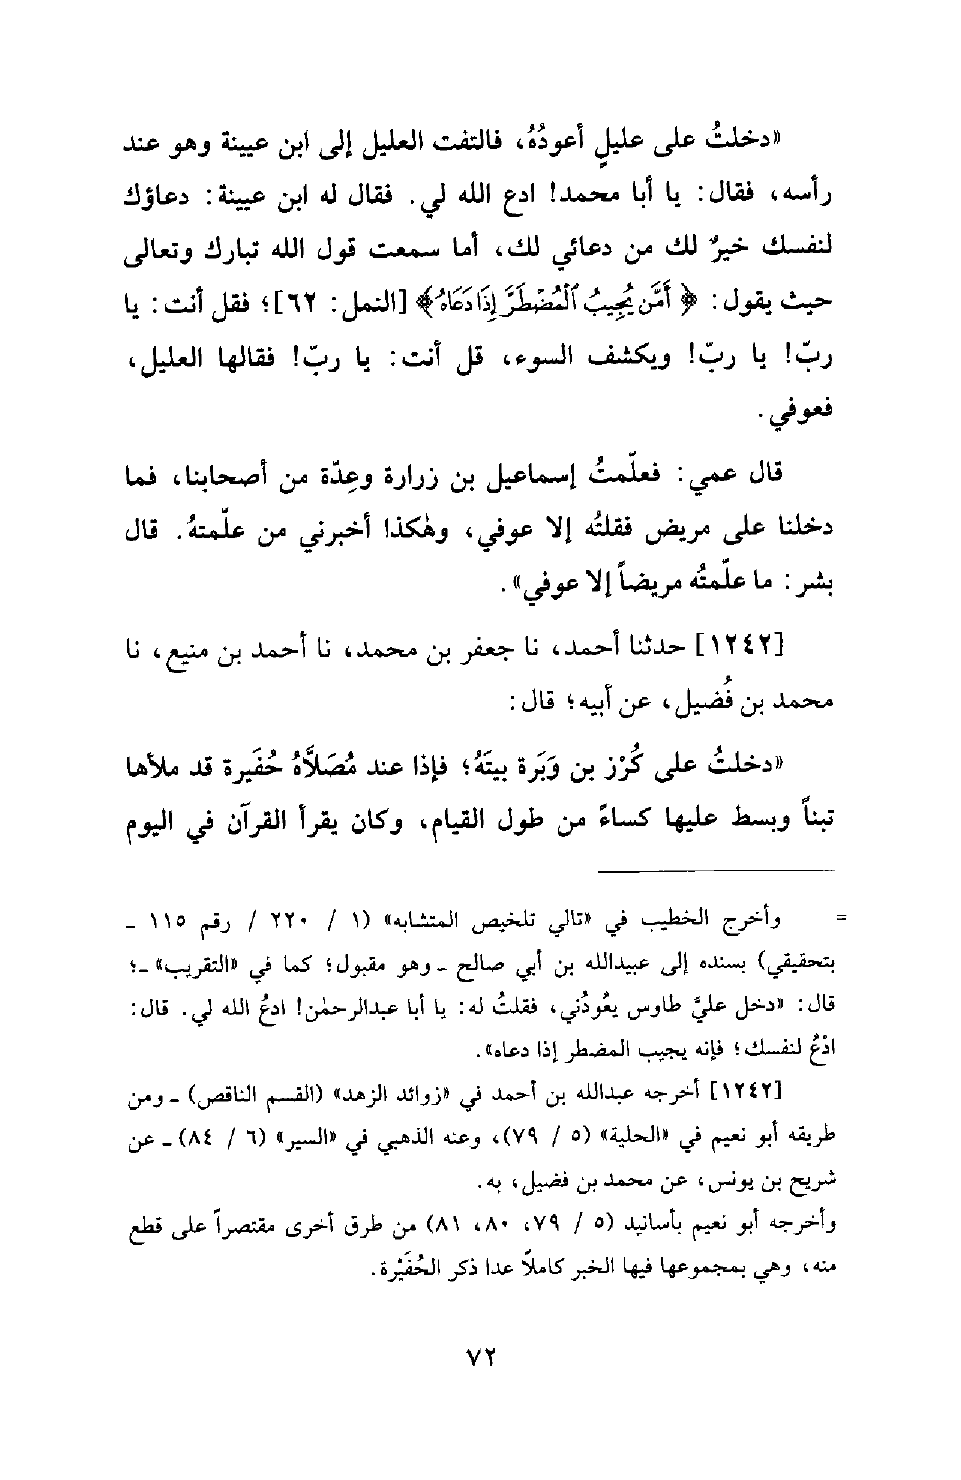 «دخلتُ على عليلٍ أعودُهُ، فالتفت العليل إلى ابن عيينة وهو عند
رأسه، فقال: يا أبا محمد! ادع الله لي. فقال له ابن عيينة: دعاؤك
لنفسك خيرٌ لك من دعائي لك، أما سمعت قول الله تبارك وتعالى
حيث يقول: ﴿أَمَّن يُجِيبُ ٱلْمُضْطَرَّ إِذَا دَعَاهُ﴾ [النمل: ٦٢]؛ فقل أنت: يا
ربّ! يا ربّ! ويكشف السوء، قل أنت: يا ربّ! فقالها العليل،
فعوفي.
قال عمي: فعلّمتُ إسماعيل بن زرارة وعِدّة من أصحابنا، فما
دخلنا على مريض فقلتُه إلا عوفي، وهٰكذا أخبرني من علّمتهُ. قال
بشر: ما علّمتُه مريضاً إلا عوفي».
[١٢٤٢] حدثنا أحمد، نا جعفر بن محمد، نا أحمد بن منيع، نا
محمد بن فُضيل، عن أبيه؛ قال:
«دخلتُ على كُرْز بن وَبَرة بيتَهُ؛ فإذا عند مُصَلاَّهُ حُفَيرة قد ملأها
تبناً وبسط عليها كساءً من طول القيام، وكان يقرأ القرآن في اليوم
= وأخرج الخطيب في «تالي تلخيص المتشابه» (١ / ٢٢٠ / رقم ١١٥ ـ
بتحقيقي) بسنده إلى عبيدالله بن أبي صالح ـ وهو مقبول؛ كما في «التقريب» ـ؛
قال: «دخل عليَّ طاوس يعُودُني، فقلتُ له: يا أبا عبدالرحمٰن! ادعُ الله لي. قال:
ادْعُ لنفسك؛ فإنه يجيب المضطر إذا دعاه».
[١٢٤٢] أخرجه عبدالله بن أحمد في «زوائد الزهد» (القسم الناقص) ـ ومن
طريقه أبو نعيم في «الحلية» (٥ / ٧٩)، وعنه الذهبي في «السير» (٦ / ٨٤) ـ عن
شريح بن يونس، عن محمد بن فضيل، به.
وأخرجه أبو نعيم بأسانيد (٥ / ٧٩، ٨٠، ٨١) من طرق أخرى مقتصراً على قطع
منه، وهي بمجموعها فيها الخبر كاملاً عدا ذكر الحُفَيْرة.
٧٢